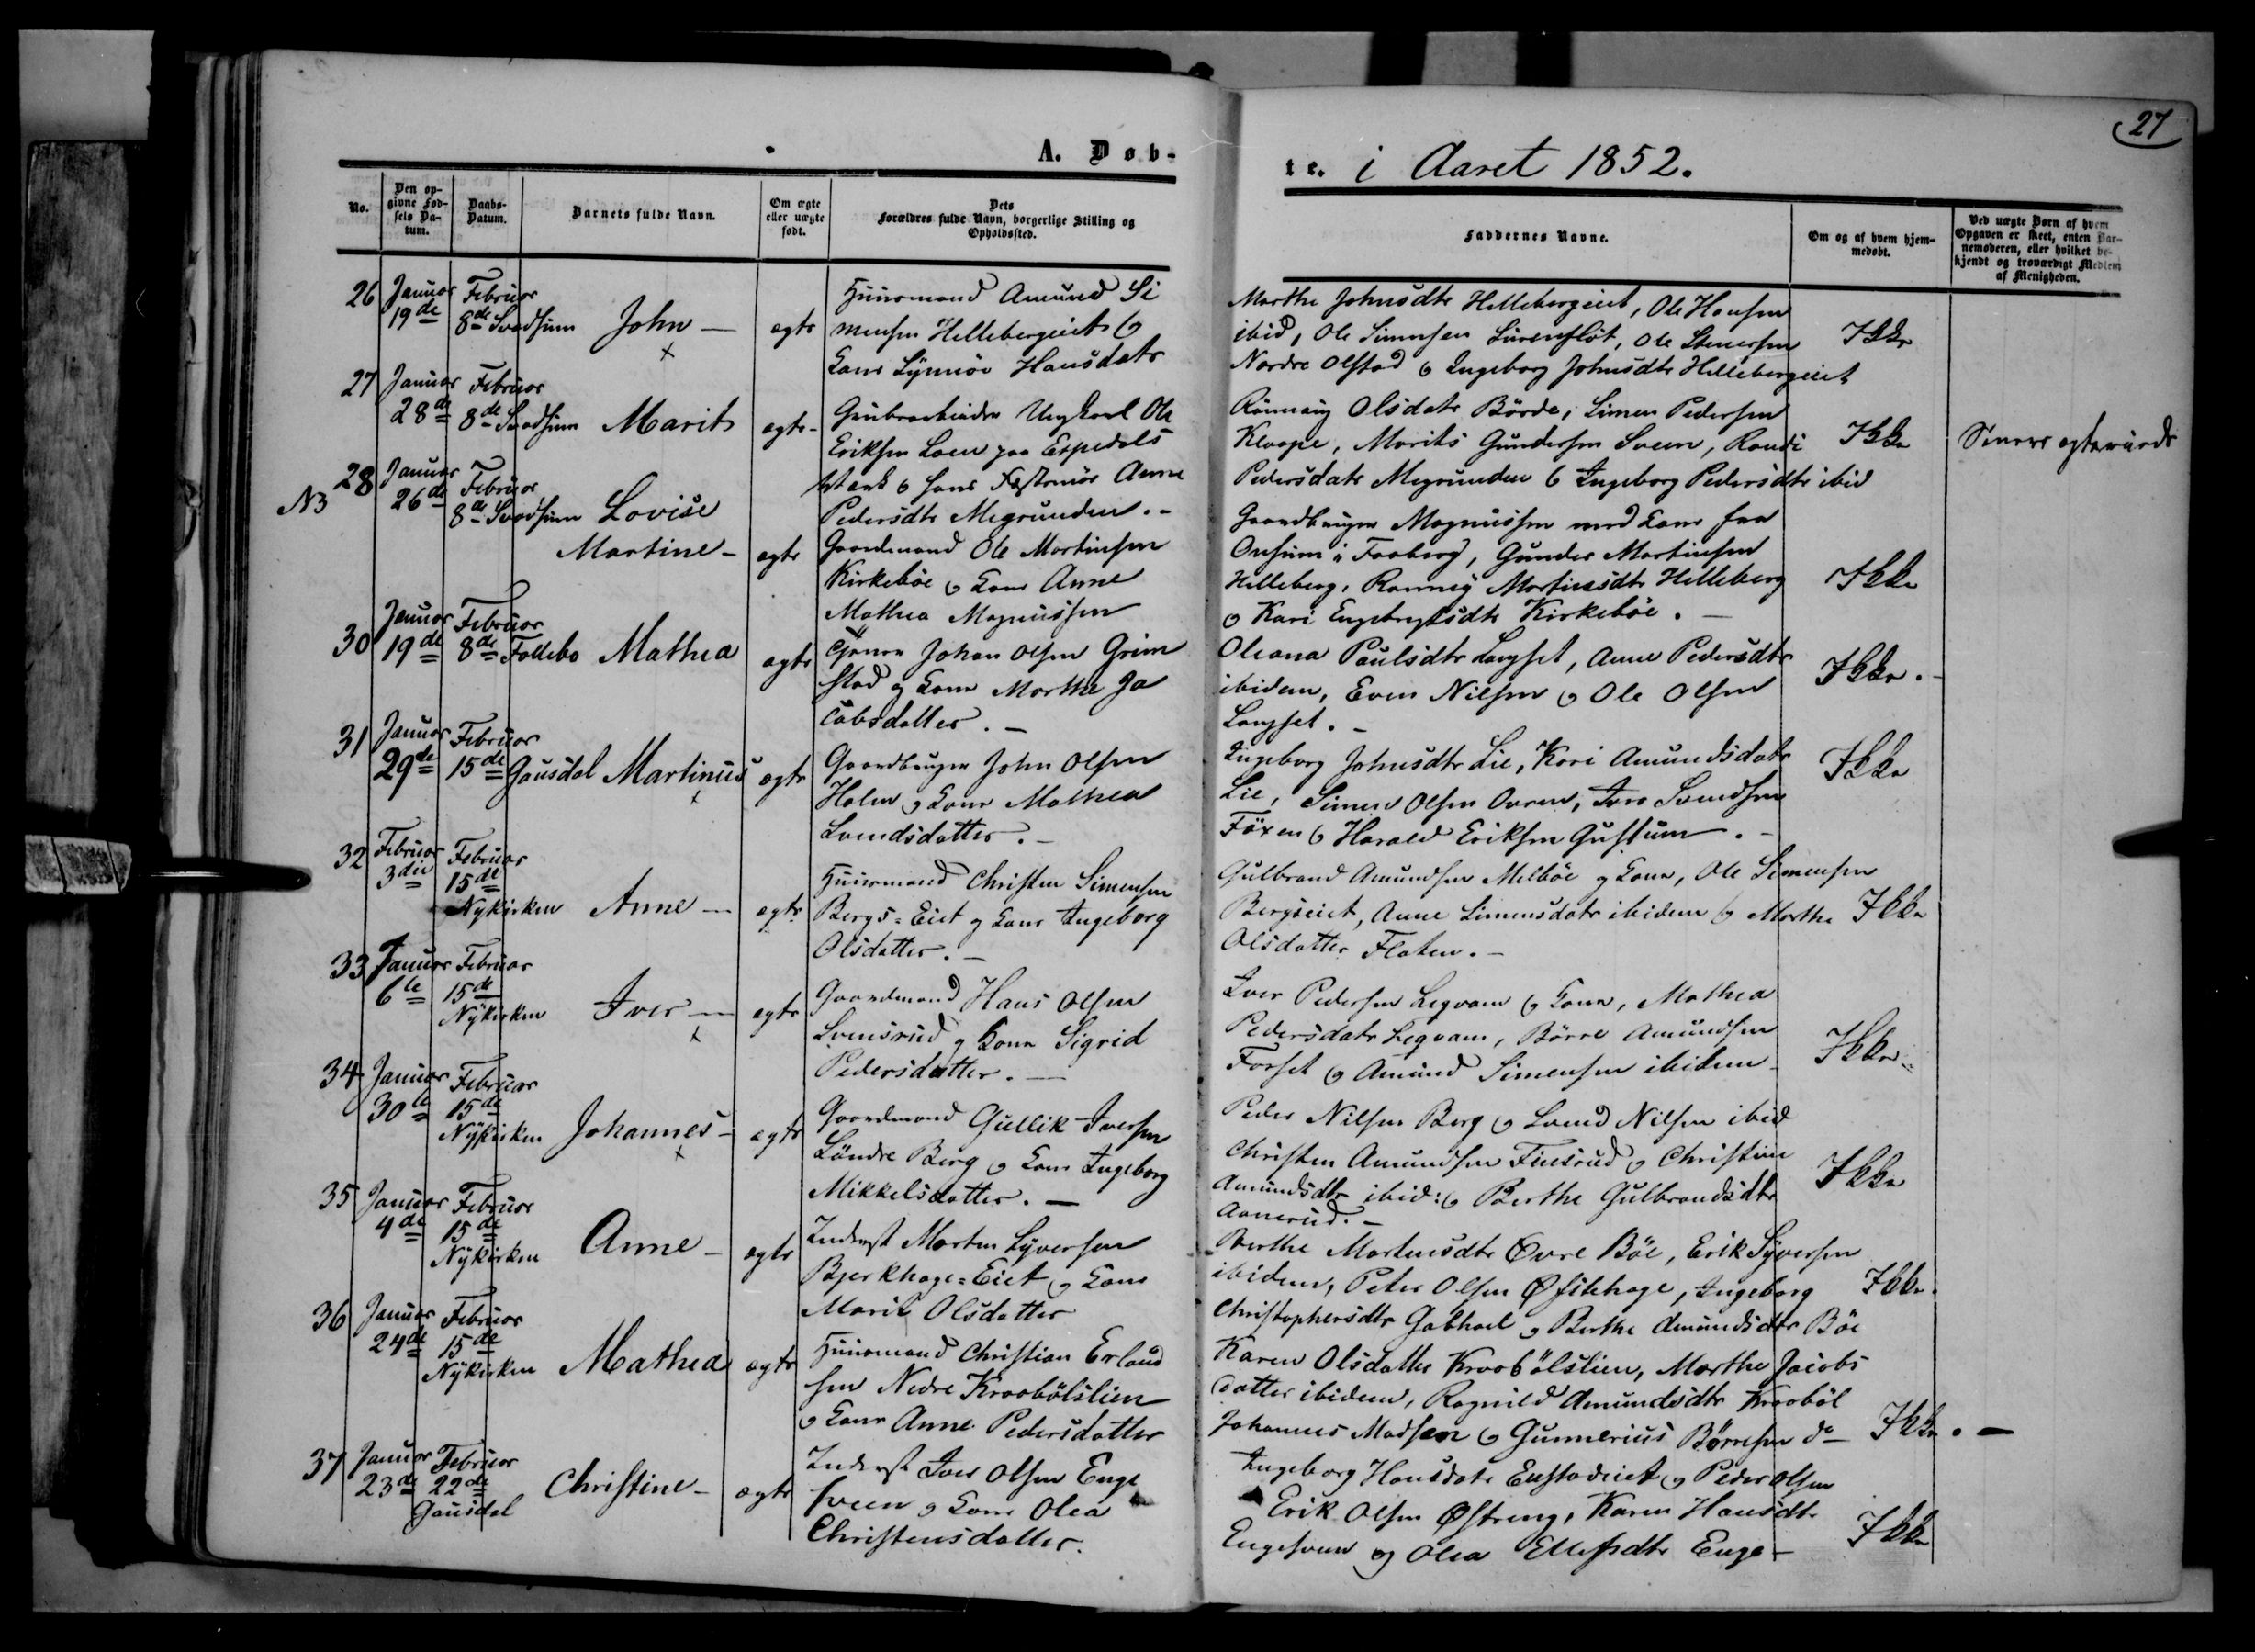 27
A. Døb-
te. i Aaret 1852.
No.
Den op-
givne Fød-
sels Da-
tum.
Daabs-
Datum.
Barnets fulde Navn.
Om ægte
eller uægte
født.
Dets
Forældres fulde Navn, borgerlige Stilling og
Opholdssted.
Faddernes Navne.
Om og af hvem hjem-
medøbt.
Ved uægte Børn af hvem
Opgaven er skeet, enten Bar-
nemoderen, eller hvilket be-
kjendt og troværdigt Medlem
af Menigheden.
26 Januar 19de
Februar 8de Svadsum
John
ægte
Huusmand Amund Si
mensen Hellebergeiet og
Kone Synnøv Hansdatr
Marthe Johnsdtr Hellebergeiet, Ole Hansen
ibid, Ole Simensen, Ole Steuersen
Nordre Olstad og Ingeborg Johnsdtr Hellebergeiet
Ikke
27 Januar 28de
Februar 8de Svadsum
Marit
ægte
Ungkarl Ole
Eriksen Loen paa Espedals
Værk og hans Fæstemør Anne
Pedersdtr Megrunden.
Rønnaug Olsdatr Börde, Simen Pedersen
Kleope, Marits Gundersen Sveen, Randi
Pedersdatr Megrunden og Ingeborg Pedersdtr ibid
Ikke
Senere ægteviede
N3
28 Januar 26de
Februar 8de Svadsum
Lovise
Martine
ægte
Gaardmand Ole Martinsen
Kirkebøe og Kone Anne
Mathea Magnussen
Gaardbruger Magnussen med Kone fra
Onsum i Faaberg, Gunder Martinsen
Helleberg, Rønnaug Martinsdtr Helleberg
og Kari Engebregtsdtr Kirkebøe.
Ikke
30 Januar 19de
Februar 8de Follebo
Mathea
ægte
Tjener Johan Olsen Grim
stad og Kone Marthe Ja
cobsdatter.
Oleana Paulsdtr Langset, Anne Pedersdtr
ibidem, Even Nilsen og Ole Olsen
Langset.
Ikke.
31 Januar 29de
Februar 15de Gausdal
Martinus
ægte
Gaardbruger John Olsen
Holen og Kone Mathea
Svendsdatter.
Ingeborg Johnsdtr Lie, Kari Amundsdatr
Lie, Simen Olsen Ouren, Iver Svendsen
Föxen og Harald Eriksen Gustum.
Ikke
32 Februar 3die
Februar 15de
Nykirken
Anne
ægte
Huusmand Christen Simensen
Bergs=Eiet og Kone Ingeborg
Olsdatter.
Gulbrand Amundsen Melbøe og Kone, Ole Simensen
Bergseiet, Anne Simensdatr ibidem og Marthe
Olsdatter Flaten.
Ikke
33 Januar 6te
Februar 15de
Nykirken
Iver
ægte
Gaardmand Hans Olsen
Svensrud og Kone Sigrid
Pedersdatter.
Iver Pedersen Legvam og Kone, Mathea
Pedersdatr Legvam, Börre Amundsen
Forset og Amund Simensen ibidem
Ikke
34 Januar 30te
Februar 15de
Nykirken
Johannes
ægte
Gaardmand Gullik Iversen
Söndre Berg og Kone Ingeborg
Mikkelsdatter.
Peder Nilsen Berg og Svend Nilsen ibid
Christen Amundsen Finsrud og Christine
Amundsdtr ibid: og Berthe Gulbrandsdtr
Aanerud.
Ikke
35 Januar 4de
Februar 15de
Nykirken
Anne
ægte
Inderst Morten Syversen
Bjerkhage=Eiet og Kone
Marit Olsdatter
Berthe Mortensdtr Øvre Böe, Erik Syversen
ibidem, Peter Olsen Øfstehage, Ingeborg
Christophersdtr Galhoel og Berthe Amundsdtr Böe
Ikke.
36 Januar 24de
Februar 15de
Nykirken
Mathea
ægte
Huusmand Christian Erland
sen Nedre Kraabölslien
og Kone Anne Pedersdatter
Karen Olsdatter Kraabölslien, Marthe Jacobs
datter ibidem, Ragnild Amundsdtr Kraaböl
Johannes Madsen og Gunnerius Börresen do
Ikke.
37 Januar 23de
Februar 22de
Gausdal
Christine
ægte
Inderst Iver Olsen Enge
sveen og Kone Olea
Christensdatter.
Ingeborg Hansdatr og Peder Olsen
Erik Olsen Østreng, Karen Hansdtr
Engesveen og Olea Ellefsdtr Enge
Ikke